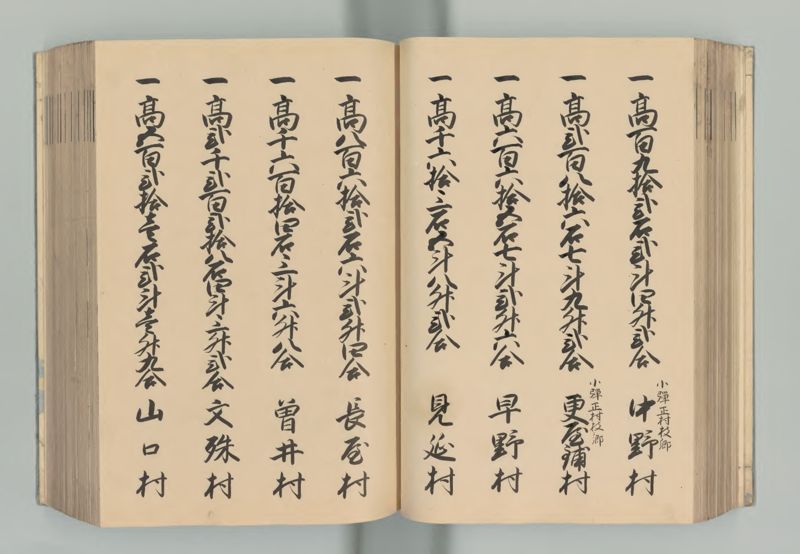 一高百九拾弐石弐斗四升弐合 小弾正村枝郷 中野村
一高弐百八拾六石七斗九升弐合 小弾正村枝郷 更屋鋪村
一高六百六拾五石七斗弐升六合 早野村
一高千六拾三石五斗八升弐合 見延村
一高八百六拾弐石六斗弐升四合 長屋村
一高千六百拾四石三斗六升八合 曽井村
一高弐千弐百弐拾八石四斗三升弐合 文殊村
一高五百弐拾壱石弐斗壱升九合 山口村